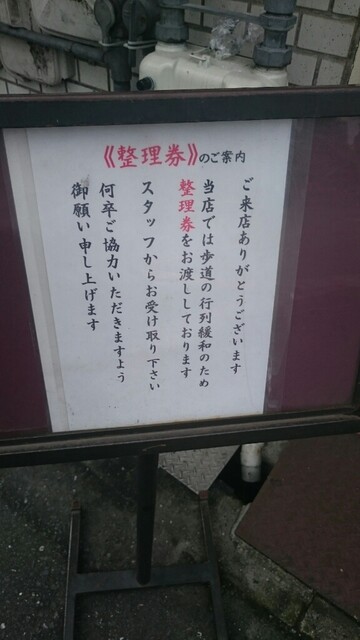 《整理券》のご案内
ご来店ありがとうございます
当店では歩道の行列緩和のため
整理券をお渡ししております
スタッフからお受け取り下さい
何卒ご協力いただきますよう
御願い申し上げます